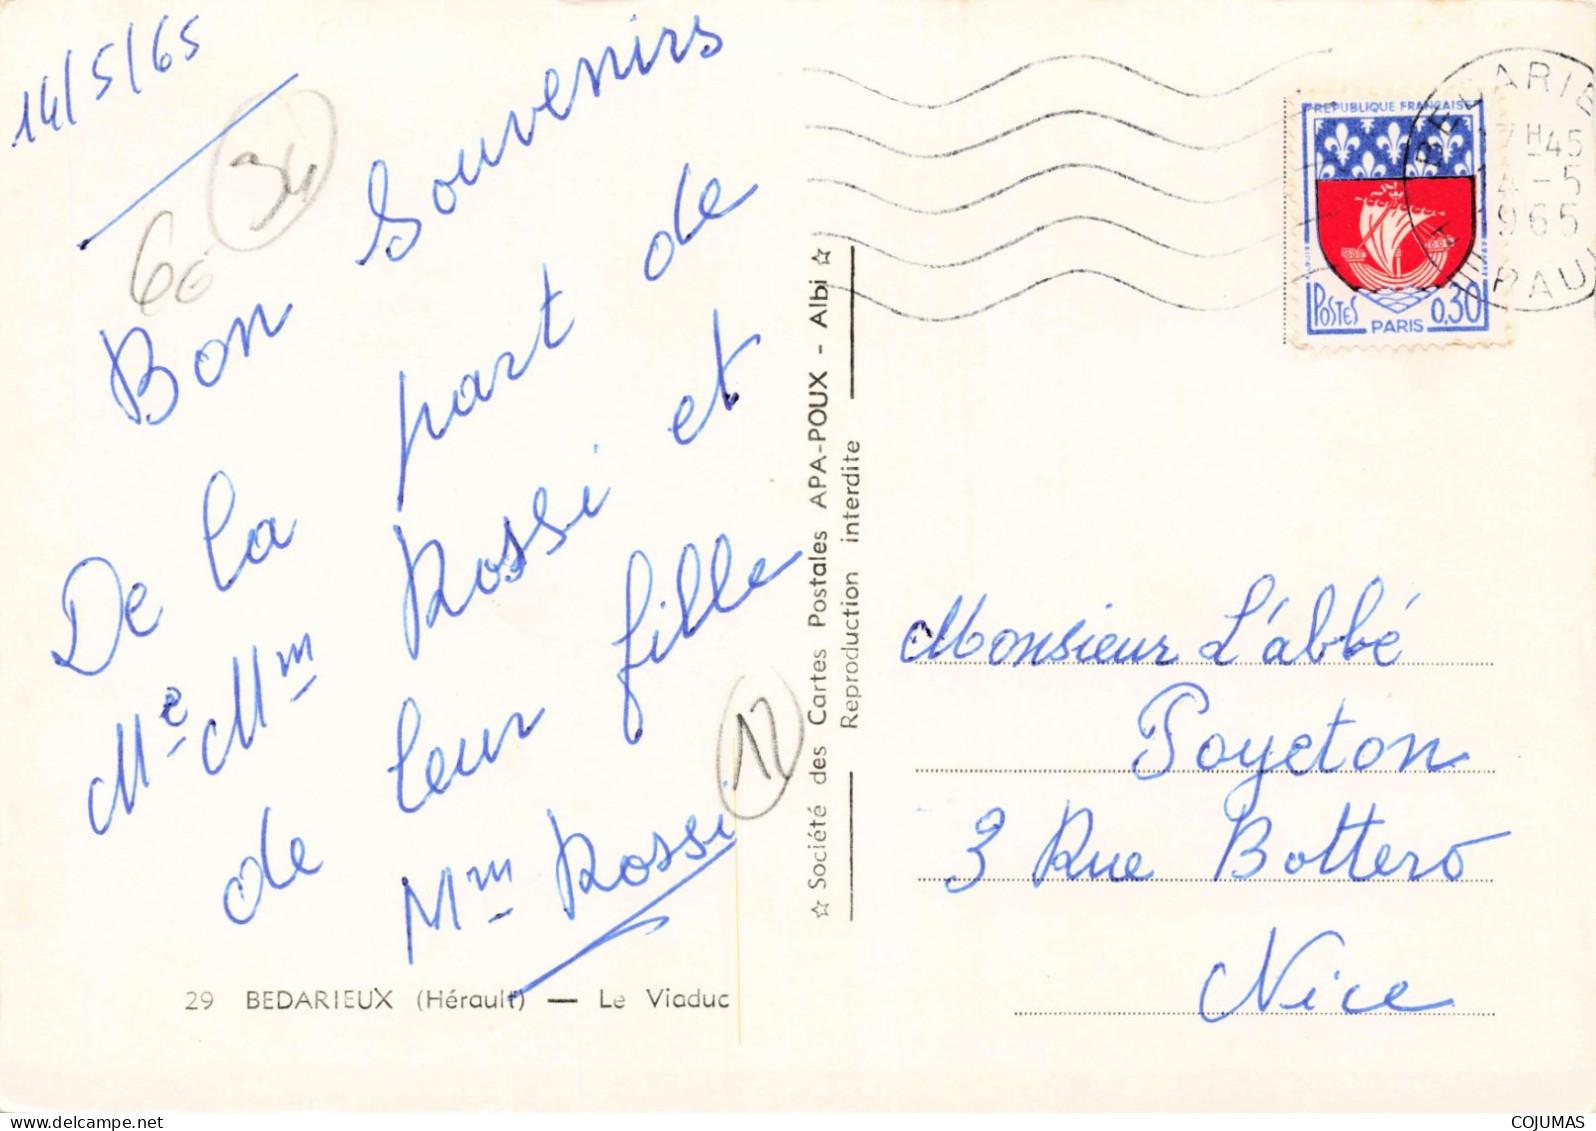 14/5/65
34
60
Bon Souvenirs
De la part de
Me Mm Rossi et
de leur fille
Mm Rossi
12
29 BEDARIEUX (Hérault) — Le Viaduc
☆ Société des Cartes Postales APA-POUX - Albi ☆
Reproduction interdite
REPUBLIQUE FRANÇAISE
POSTES 0,30
PARIS
BEDARIE
17H45
14-5
1965
RAU
Monsieur L'abbé
Poyeton
3 Rue Bottero
Nice
delcampe.net
COJUMAS